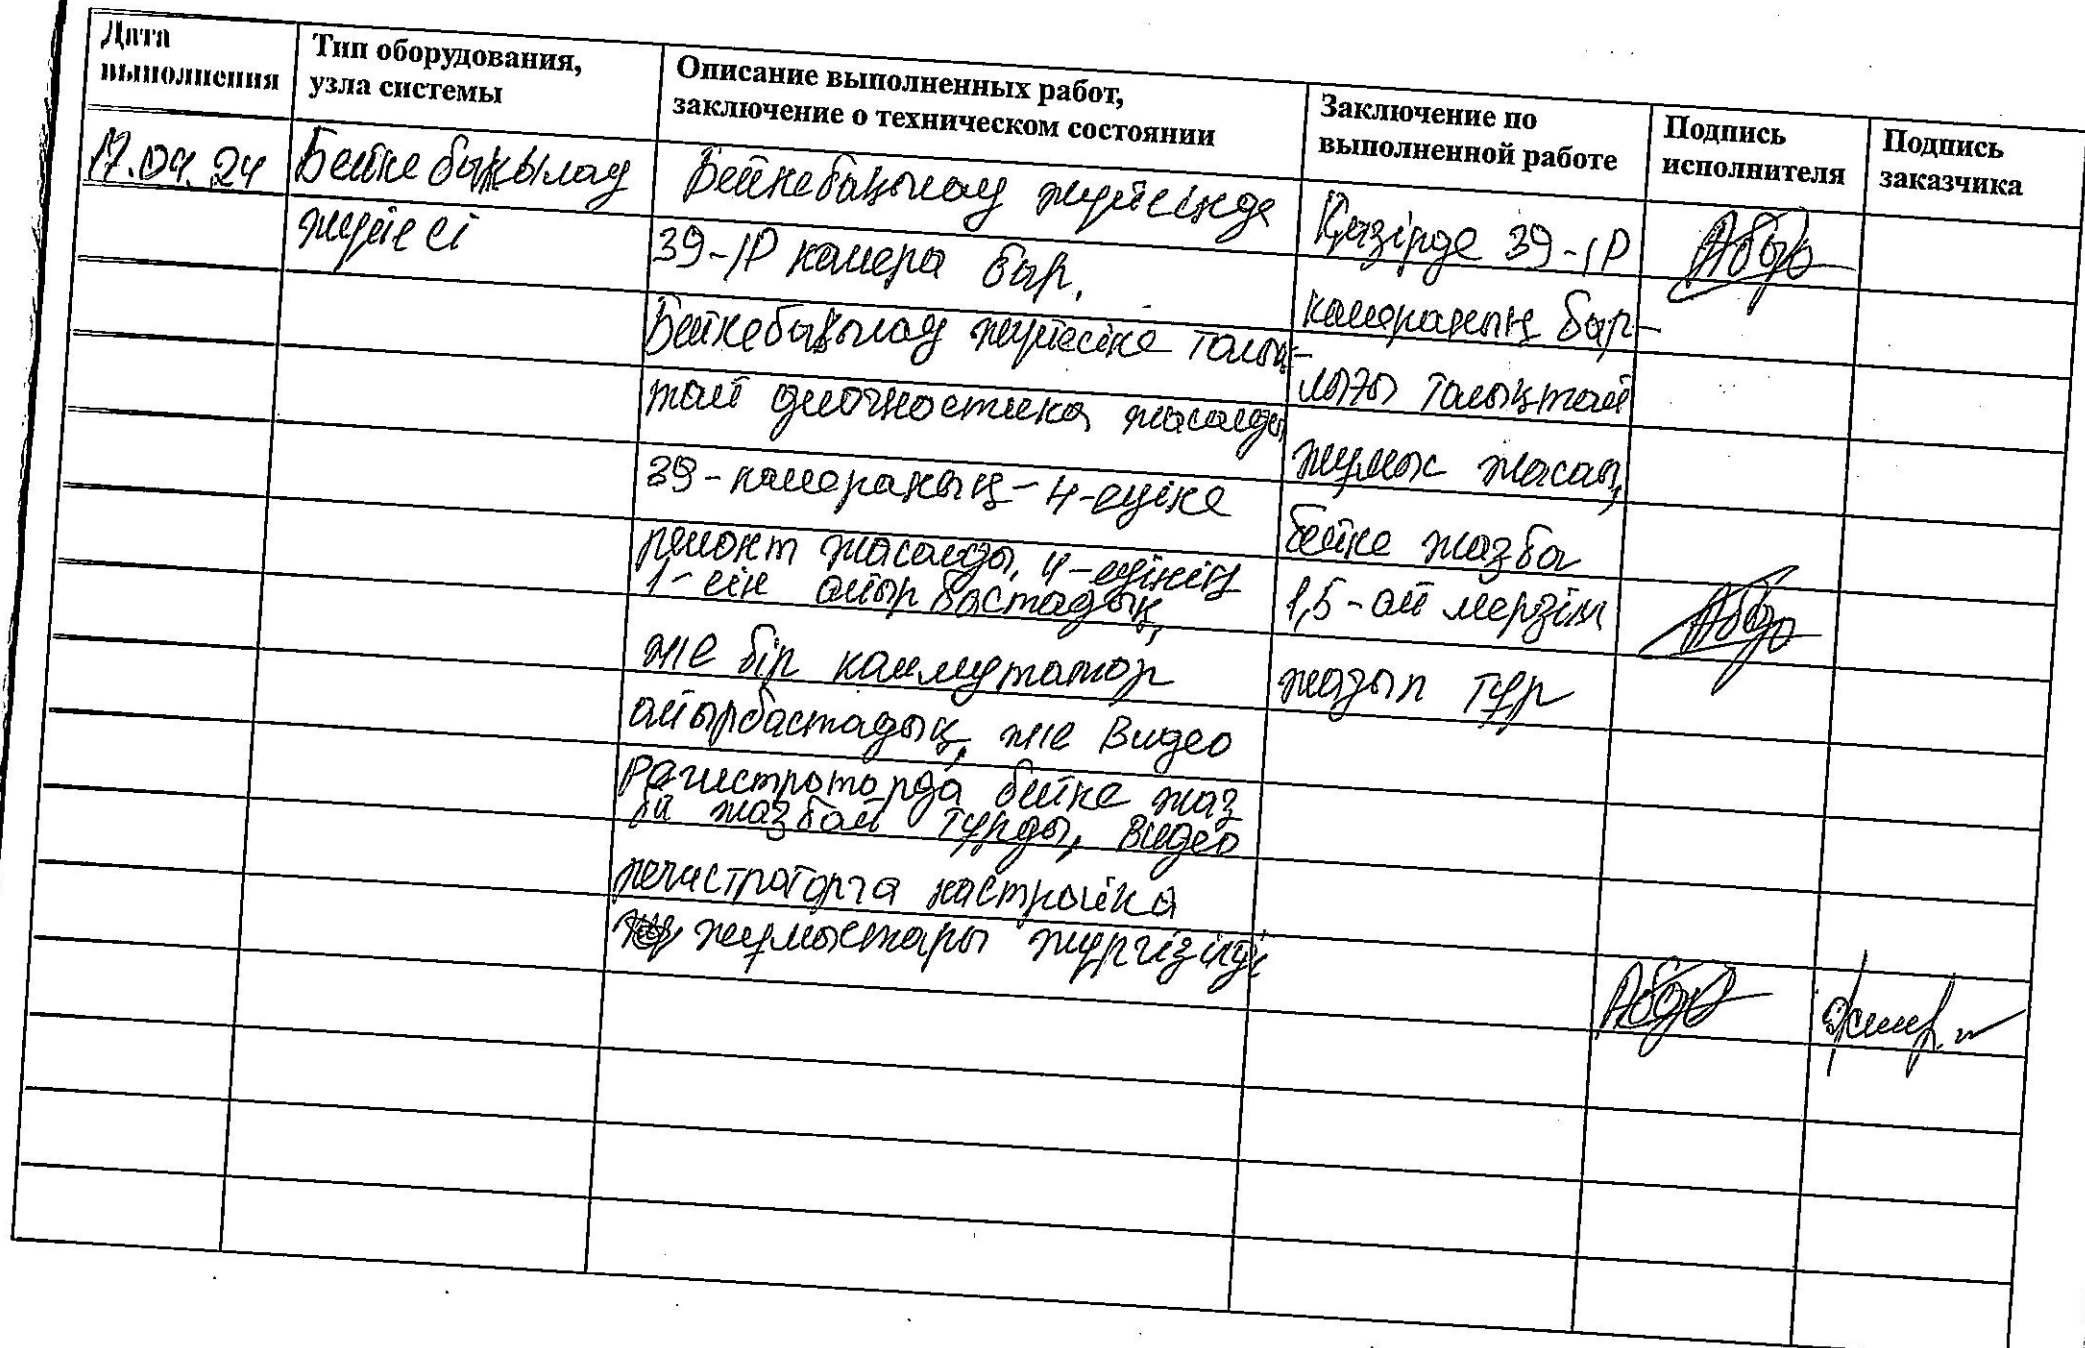 Дата выполнения
Тип оборудования, узла системы
Описание выполненных работ, заключение о техническом состоянии
Заключение по выполненной работе
Подпись исполнителя
Подпись заказчика
17.04.24
Бейнебақылау
жүйесі
Бейнебақылау жүйесінде
39-IP камера бар.
Бейнебақылау жүйесіне толық-
тай диогностика жасалды
39-камераның-4-еуіне
ремонт жасалды, 4-еуінің
1-еін айырбастадық,
және бір каммутатор
айырбастадық, және видео
регистраторда бейне жаз
ба жазбай тұрды, видео
регистраторға настройка
жұмыстары жүргізілді
Қазірде 39-IP
камераның бар-
лығы толықтай
жұмыс жасап,
бейне жазба
1,5-ай мерзім
жазып тұр